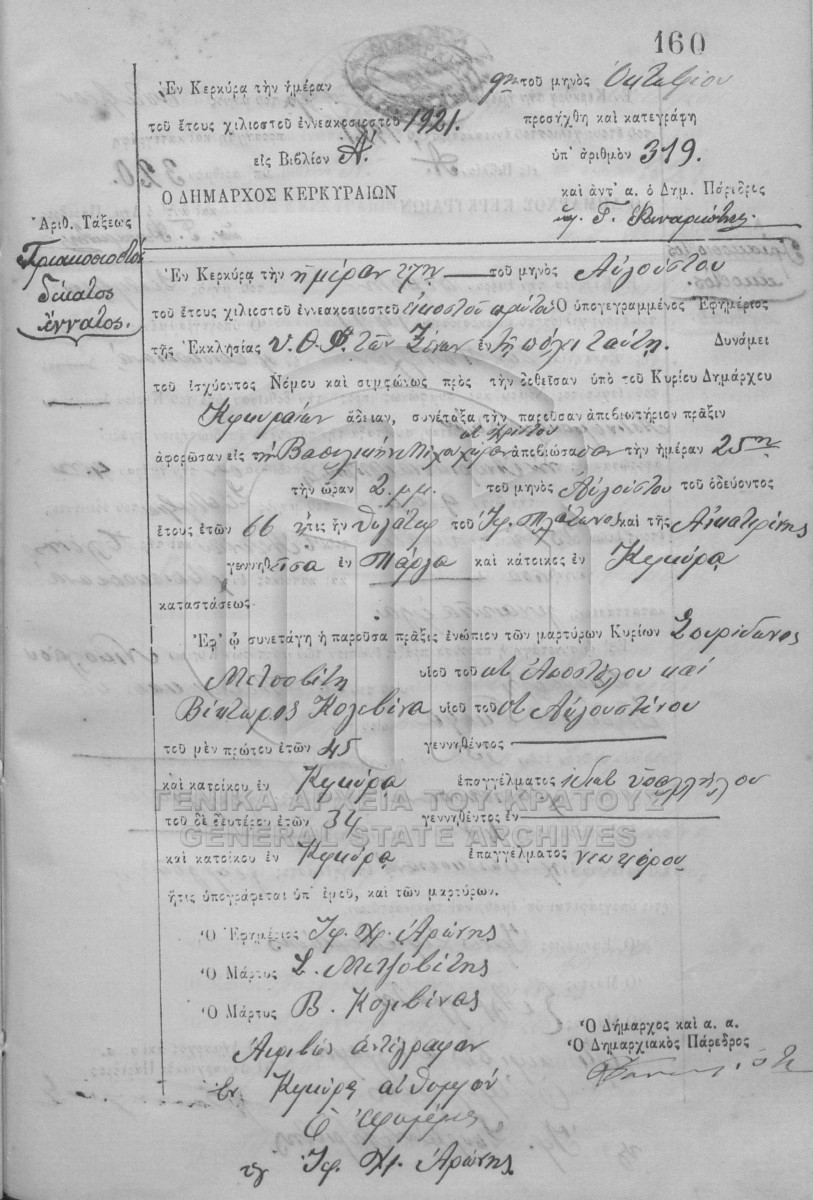 160
Ἐν Κερκύρᾳ τὴν ἡμέραν 9ην τοῦ μηνὸς Ὀκτωβρίου
τοῦ ἔτους χιλιοστοῦ ἐννεακοσιοστοῦ 1921. προσήχθη καὶ κατεγράφη
εἰς Βιβλίον Α΄. ὑπ᾽ ἀριθμὸν 319.
Ο ΔΗΜΑΡΧΟΣ ΚΕΡΚΥΡΑΙΩΝ καὶ ἀντ᾽ α. ὁ Δημ. Πάρεδρος
Γ.
Ἀριθ. Τάξεως
Τριακοσιοστὸς
δέκατος
ἔννατος.
Ἐν Κερκύρᾳ τὴν ἡμέραν 27ην τοῦ μηνὸς Αὐγούστου
τοῦ ἔτους χιλιοστοῦ ἐννεακοσιοστοῦ εἰκοστοῦ πρώτου Ὁ ὑπογεγραμμένος Ἐφημέριος
τῆς Ἐκκλησίας Υ. Θ. Φ. τῶν Ξένων ἐν τῇ πόλει ταύτῃ. Δυνάμει
τοῦ ἰσχύοντος Νόμου καὶ συμφώνως πρὸς τὴν δοθεῖσαν ὑπὸ τοῦ Κυρίου Δημάρχου
Κερκυραίων ἄδειαν, συνέταξα τὴν παροῦσαν ἀπεβιωτήριον πρᾶξιν
ἀφορῶσαν εἰς τὴν Βασιλικὴν χήραν Χρίστου ἀπεβιώσασαν τὴν ἡμέραν 25ην
τὴν ὥραν 2. μ.μ. τοῦ μηνὸς Αὐγούστου τοῦ ὁδεύοντος
ἔτους ἐτῶν 66 ἥτις ἦν θυγάτηρ τοῦ Ἱερ. Πλάτωνος καὶ τῆς Αἰκατερίνης
γεννηθεῖσα ἐν Πάργᾳ καὶ κάτοικος ἐν Κερκύρᾳ
καταστάσεως
Ἐφ᾽ ᾧ συνετάγη ἡ παροῦσα πρᾶξις ἐνώπιον τῶν μαρτύρων Κυρίων Σπυρίδωνος
Μετσοβίτη υἱοῦ τοῦ ποτ Ἀποστόλου καὶ
Βίκτωρος Κολεβίνα υἱοῦ τοῦ ποτ Αὐγουστίνου
τοῦ μὲν πρώτου ἐτῶν 45 γεννηθέντος
καὶ κατοίκου ἐν Κερκύρᾳ ἐπαγγέλματος ἰδιωτ ὑπαλλήλου
ΓΕΝΙΚΑ ΑΡΧΕΙΑ ΤΟΥ ΚΡΑΤΟΥΣ
τοῦ δὲ δευτέρου ἐτῶν 34 γεννηθέντος ἐν
GENERAL STATE ARCHIVES
καὶ κατοίκου ἐν Κερκύρᾳ ἐπαγγέλματος νεωκόρου
ἥτις ὑπογράφεται ὑπ᾽ ἐμοῦ, καὶ τῶν μαρτύρων.
Ὁ Ἐφημέριος Ἱερ. Χρ. Ἀρώνης
Ὁ Μάρτυς Σ. Μετζοβίτης
Ὁ Μάρτυς Β. Κολεβίνας
Ἀκριβὲς ἀντίγραφον
Ἐν Κερκύρᾳ αὐθημερόν
Ὁ Ἐφημέριος
Ἱερ. Χρ. Ἀρώνης
Ὁ Δήμαρχος καὶ α. α.
Ὁ Δημαρχιακὸς Πάρεδρος